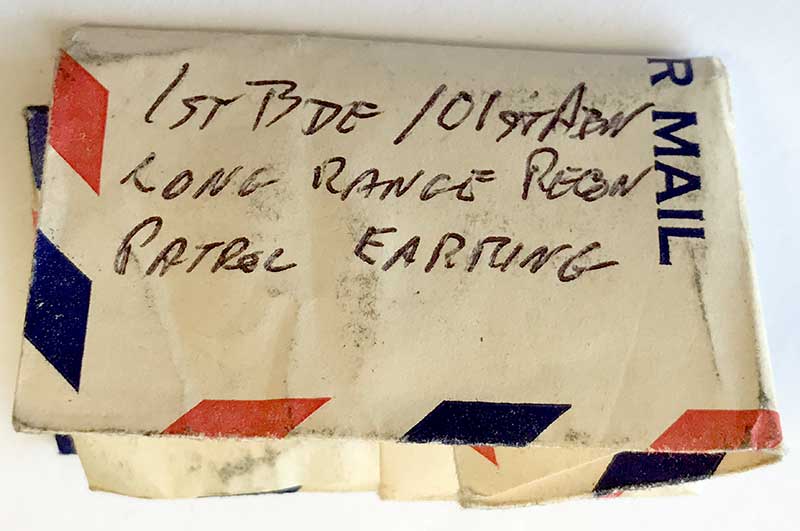 1ST BDE 101ST ABN
LONG RANGE RECON
PATROL EARRING
R MAIL